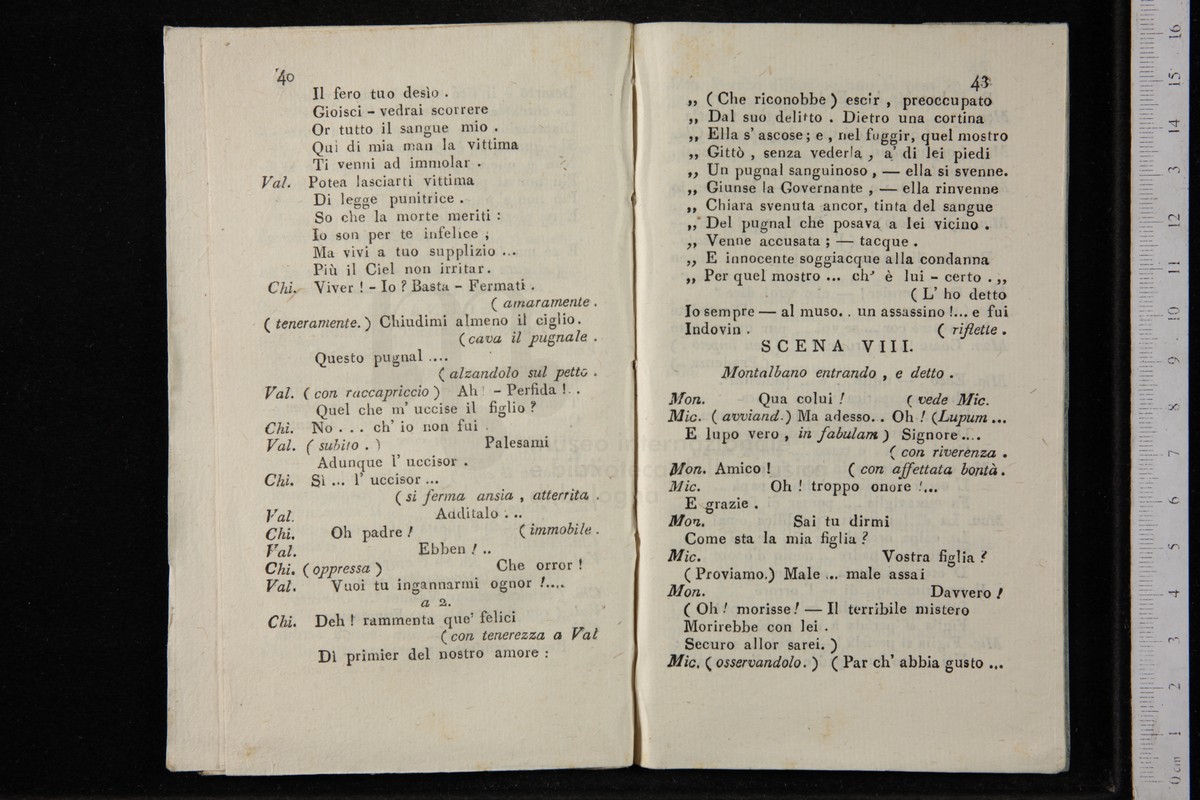 40
Il fero tuo desìo .
Gioisci - vedrai scorrere
Or tutto il sangue mio .
Qui di mia man la vittima
Ti venni ad immolar .
Val. Potea lasciarti vittima
Di legge punitrice .
So che la morte meriti :
Io son per te infelice ;
Ma vivi a tuo supplizio ...
Più il Ciel non irritar.
Chi. Viver ! - Io ? Basta - Fermati .
( amaramente .
( teneramente. ) Chiudimi almeno il ciglio.
( cava il pugnale .
Questo pugnal ....
( alzandolo sul petto .
Val. ( con raccapriccio ) Ah ! - Perfida ! . .
Quel che m' uccise il figlio ?
Chi. No . . . ch' io non fui .
Val. ( subito . ) Palesami
Adunque l' uccisor .
Chi. Sì ... l' uccisor ...
( si ferma ansia , atterrita .
Val. Additalo . ..
Chi. Oh padre ! ( immobile .
Val. Ebben ! ..
Chi. ( oppressa ) Che orror !
Val. Vuoi tu ingannarmi ognor !....
a 2.
Chi. Deh ! rammenta que' felici
( con tenerezza a Val
Dì primier del nostro amore :
43
„ ( Che riconobbe ) escir , preoccupato
„ Dal suo delitto . Dietro una cortina
„ Ella s' ascose ; e , nel fuggir, quel mostro
„ Gittò , senza vederla , a' di lei piedi
„ Un pugnal sanguinoso , — ella si svenne.
„ Giunse la Governante , — ella rinvenne
„ Chiara svenuta ancor, tinta del sangue
„ Del pugnal che posava a lei vicino .
„ Venne accusata ; — tacque .
„ E innocente soggiacque alla condanna
„ Per quel mostro ... ch' è lui - certo . „
( L' ho detto
Io sempre — al muso. . un assassino !... e fui
Indovin . ( riflette .
SCENA VIII.
Montalbano entrando , e detto .
Mon. Qua colui ! ( vede Mic.
Mic. ( avviand. ) Ma adesso. . Oh ! (Lupum ...
E lupo vero , in fabulam ) Signore ....
( con riverenza .
Mon. Amico ! ( con affettata bontà .
Mic. Oh ! troppo onore !...
E grazie .
Mon. Sai tu dirmi
Come sta la mia figlia ?
Mic. Vostra figlia ?
( Proviamo.) Male ... male assai
Mon. Davvero !
( Oh ! morisse ! — Il terribile mistero
Morirebbe con lei .
Securo allor sarei. )
Mic. ( osservandolo. ) ( Par ch' abbia gusto ...